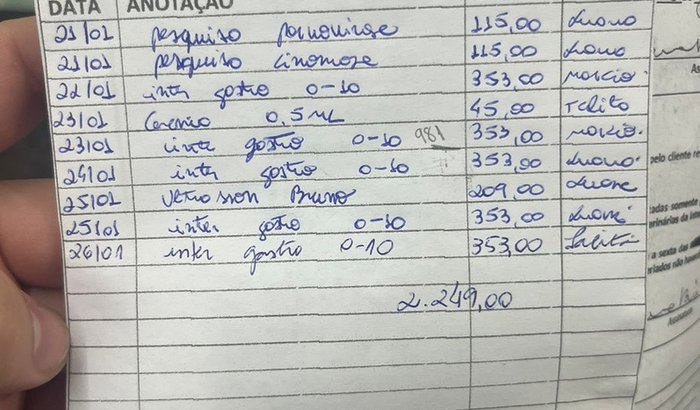 DATA ANOTAÇÃO
21/01 pesquisa parvovirose 115,00 Luana
21/01 pesquisa cinomose 115,00 Luana
22/01 inter gastro 0-10 353,00 marcia
23/01 Cerenia 0,5 mL 45,00 Talita
23/01 inter gastro 0-10 981 353,00 marcia
24/01 inter gastro 0-10 353,00 Luana
25/01 Bruno 209,00 Luana
25/01 inter gastro 0-10 353,00 Luana
26/01 inter gastro 0-10 353,00 Talita
2.249,00
pelo cliente re
adas somente
erinárias da
a sexta das
eriados não